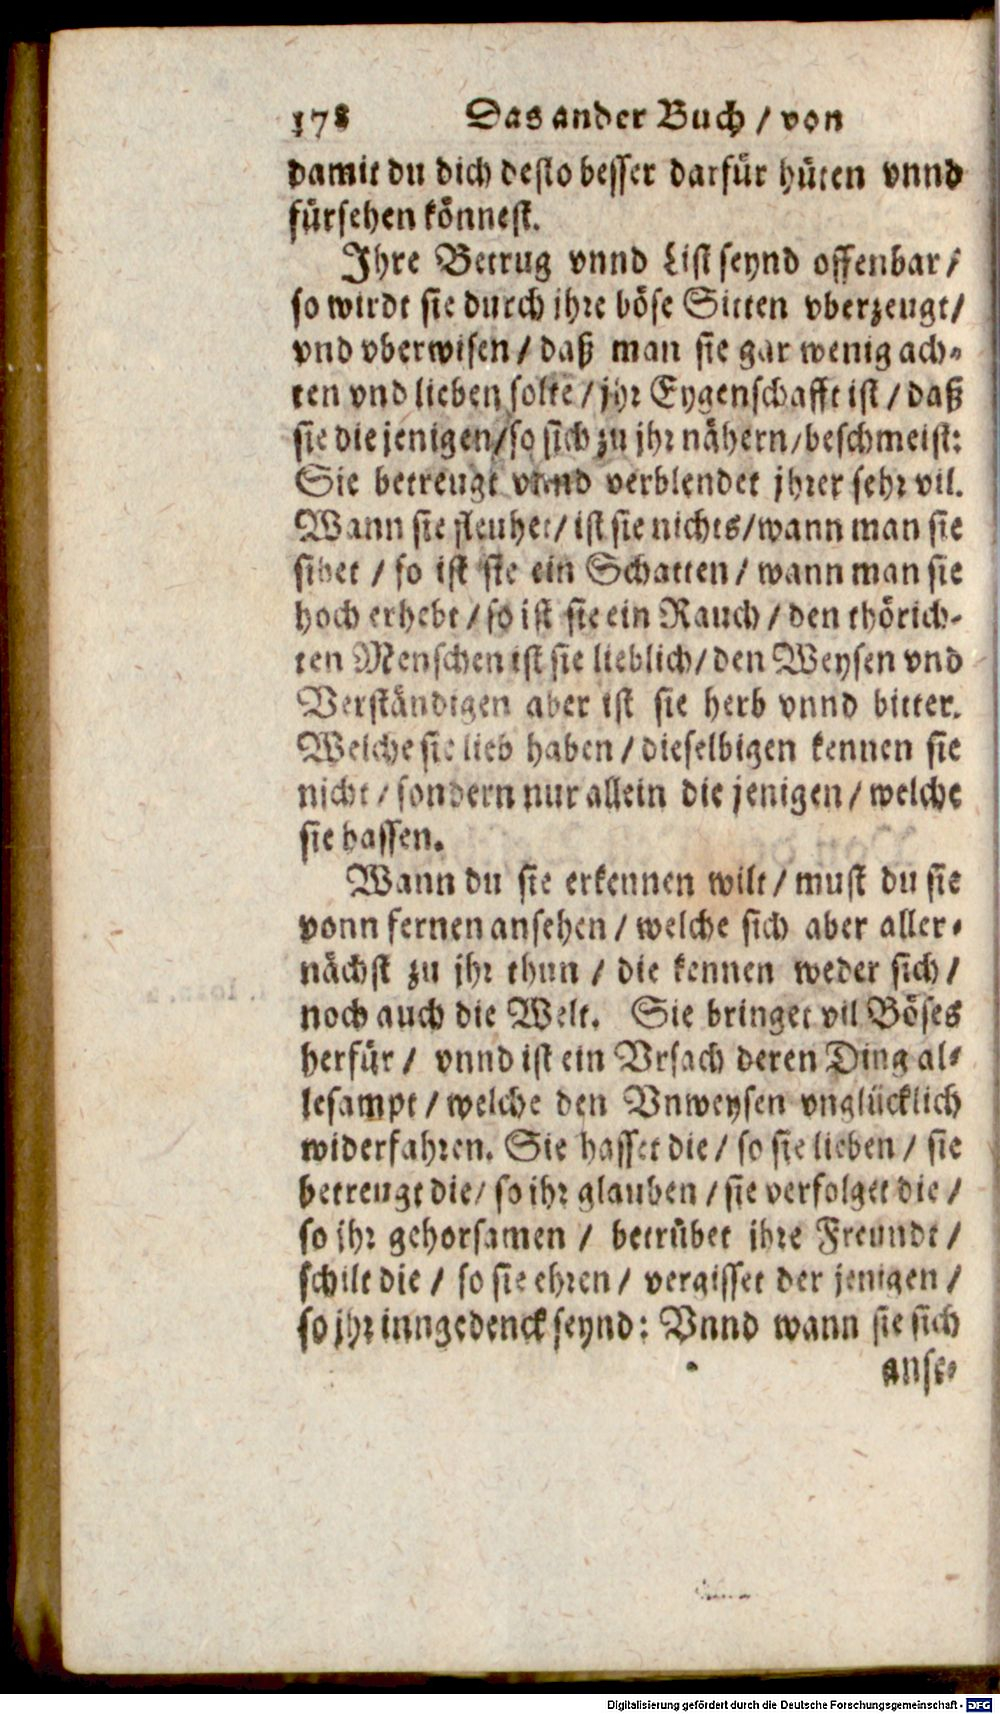 178 Das ander Buch / von
damit du dich desto besser darfür hüten vnnd
fürsehen könnest.
Ihre Betrug vnnd List seynd offenbar /
so wirdt sie durch ihre böse Sitten vberzeugt /
vnd vberwisen / daß man sie gar wenig ach-
ten vnd lieben solte / jhr Eygenschafft ist / daß
sie die jenigen / so sich zu jhr nähern / beschmeist:
Sie betreugt vnnd verblendet jhrer sehr vil.
Wann sie fleuhet / ist sie nichts / wann man sie
sihet / so ist sie ein Schatten / wann man sie
hoch erhebt / so ist sie ein Rauch / den thörich-
ten Menschen ist sie lieblich / den Weysen vnd
Verständigen aber ist sie herb vnnd bitter.
Welche sie lieb haben / dieselbigen kennen sie
nicht / sondern nur allein die jenigen / welche
sie hassen.
Wann du sie erkennen wilt / must du sie
vonn fernen ansehen / welche sich aber aller-
nächst zu jhr thun / die kennen weder sich /
noch auch die Welt. Sie bringet vil Böses
herfür / vnnd ist ein Vrsach deren Ding al-
lesampt / welche den Vnweysen vnglücklich
widerfahren. Sie hasset die / so sie lieben / sie
betreugt die / so ihr glauben / sie verfolget die /
so ihr gehorsamen / betrübet ihre Freundt /
schilt die / so sie ehren / vergisset der jenigen /
so jhr inngedenck seynd: Vnnd wann sie sich
anse-
Digitalisierung gefördert durch die Deutsche Forschungsgemeinschaft - DFG